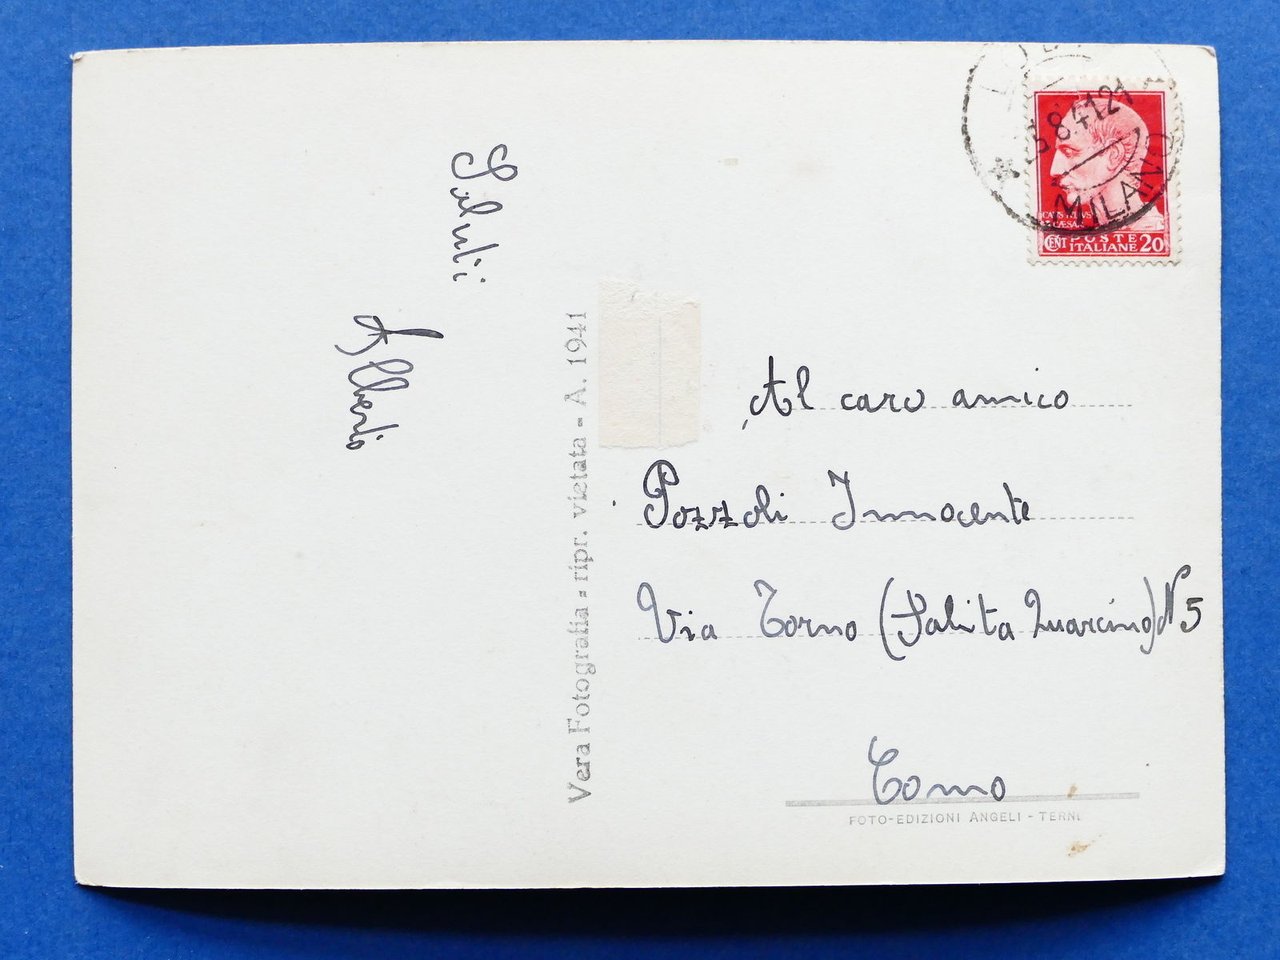 Saluti
Alberto
Vera Fotografia - ripr. vietata - A. 1941
8.41.21
MILANO
CENT POSTE
ITALIANE 20
Al caro amico
Pozzoli Innocente
Via Torno (Salita Quarcino) N 5
Como
FOTO-EDIZIONI ANGELI - TERNI